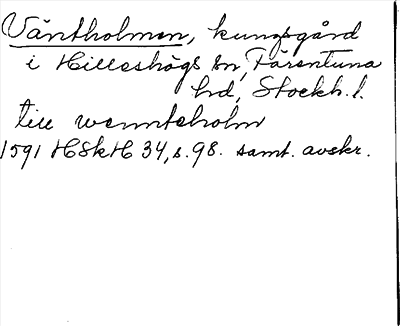 Väntholmen, kungsgård
i Hilleshögs sn, Färentuna
hd, Stockh. l.
till wennteholm
1591 HSkH 34, s. 98. samt. avskr.